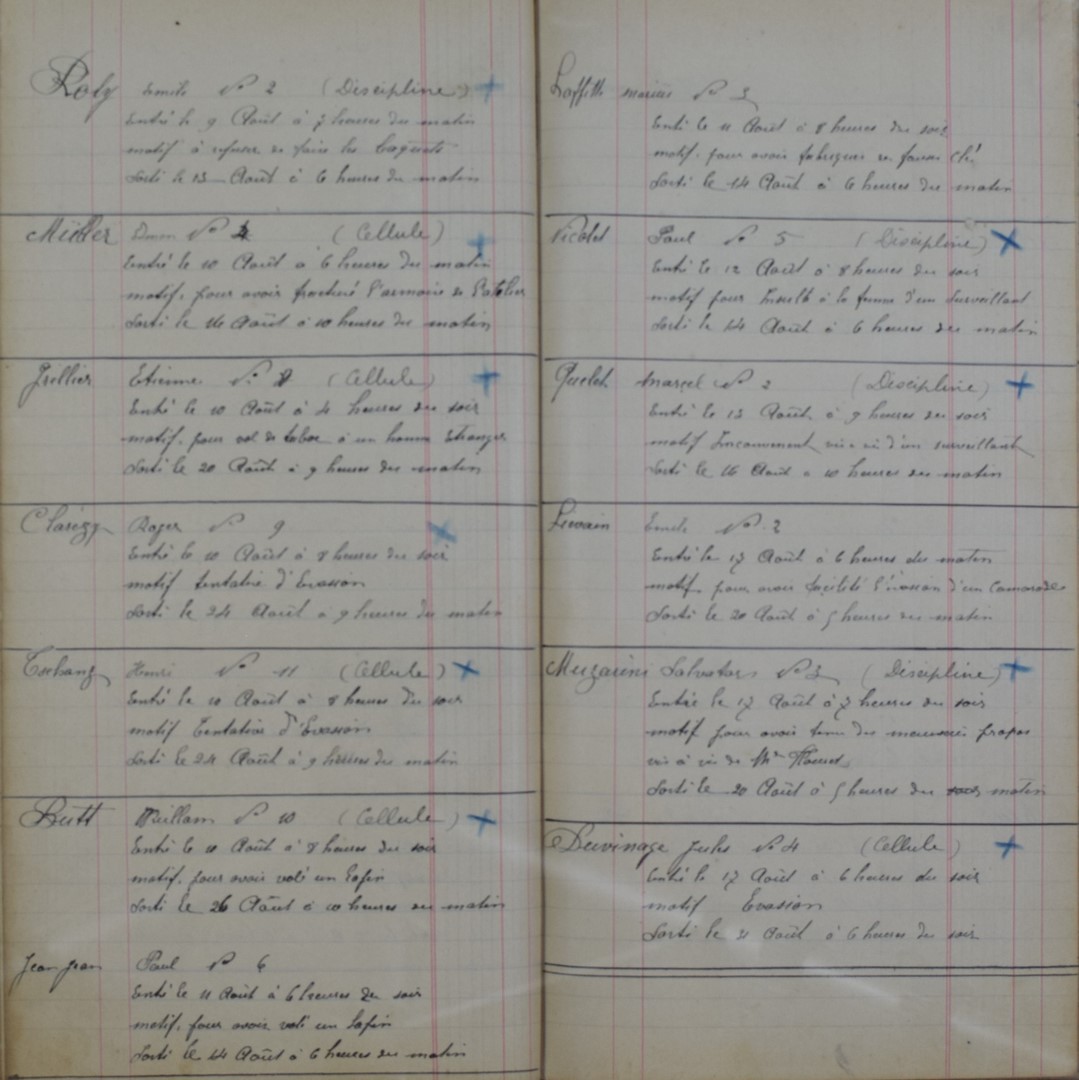 Roly Emile N° 2 (Discipline)
Entré le 9 Août à 7 heures du matin
motif à refuser de faire les baguets
Sorti le 13 Août à 6 heures du matin
Müller N° 4 (Cellule)
Entré le 10 Août à 6 heures du matin
motif, pour avoir fracturé l'armoire de l'atelier
Sorti le 16 Août à 10 heures du matin
Grellier Etienne N° 8 (Cellule)
Entré le 10 Août à 4 heures du soir
motif, pour vol de tabac à un homme Etranger
Sorti le 20 Août à 9 heures du matin
Clarizy Roger N° 9
Entré le 10 Août à 8 heures du soir
motif tentative d'Evasion
Sorti le 24 Août à 9 heures du matin
Tschanz Henri N° 11 (Cellule)
Entré le 10 Août à 8 heures du soir
motif Tentative d'Evasion
Sorti le 24 Août à 9 heures du matin
Butt Wuillam N° 10 (Cellule)
Entré le 10 Août à 8 heures du soir
motif, pour avoir volé un lapin
Sorti le 26 Août à 10 heures du matin
Jean jean Paul N° 6
Entré le 11 Août à 6 heures du soir
motif, pour avoir volé un lapin
Sorti le 14 Août à 6 heures du matin
Laffitte marius N° 3
Entré le 11 Août à 8 heures du soir
motif, pour avoir fabriquer de fausse clé
Sorti le 14 Août à 6 heures du matin
Nicolet Paul N° 5 (Discipline)
Entré le 12 Août à 8 heures du soir
motif pour Insulte à la femme d'un Surveillant
Sorti le 14 Août à 6 heures du matin
Quelet Marcel N° 2 (Discipline)
Entré le 13 Août à 9 heures du soir
motif vis à vi d'un surveillant
Sorti le 16 Août à 10 heures du matin
Levain Emile N° 2
Entré le 17 Août à 6 heures du matin
motif, pour avoir facilité l'évasion d'un Camarade
Sorti le 20 Août à 5 heures du matin
Muzarini Salvator N° 3 (Discipline)
Entré le 17 Août à 7 heures du soir
motif pour avoir tenu des mauvais propos
vis à vis de Mr
Sorti le 20 Août à 5 heures du soir matin
Duvinage Jules N° 4 (Cellule)
Entré le 17 Août à 6 heures du soir
motif Evasion
Sorti le 21 Août à 6 heures du soir